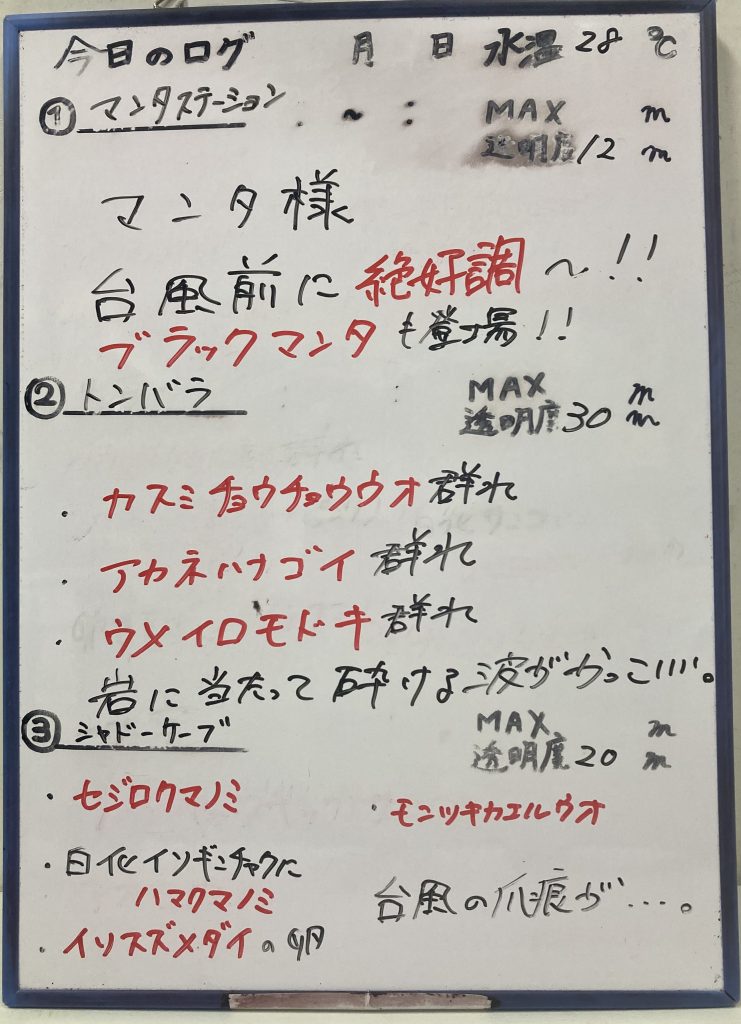 今日のログ 月 日 水温 28 ℃
① マンタステーション . ~ : MAX m
透明度 12 m
マンタ様
台風前に 絶好調 〜!!
ブラックマンタも登場!!
② トンバラ MAX m
透明度 30 m
・カスミチョウチョウウオ 群れ
・アカネハナゴイ 群れ
・ウメイロモドキ 群れ
岩に当たって砕ける波がかっこいい。
③ シャドーケーブ MAX m
透明度 20 m
・セジロクマノミ ・モンツキカエルウオ
・白化イソギンチャクに
ハマクマノミ 台風の爪痕が…。
・イソスズメダイの卵